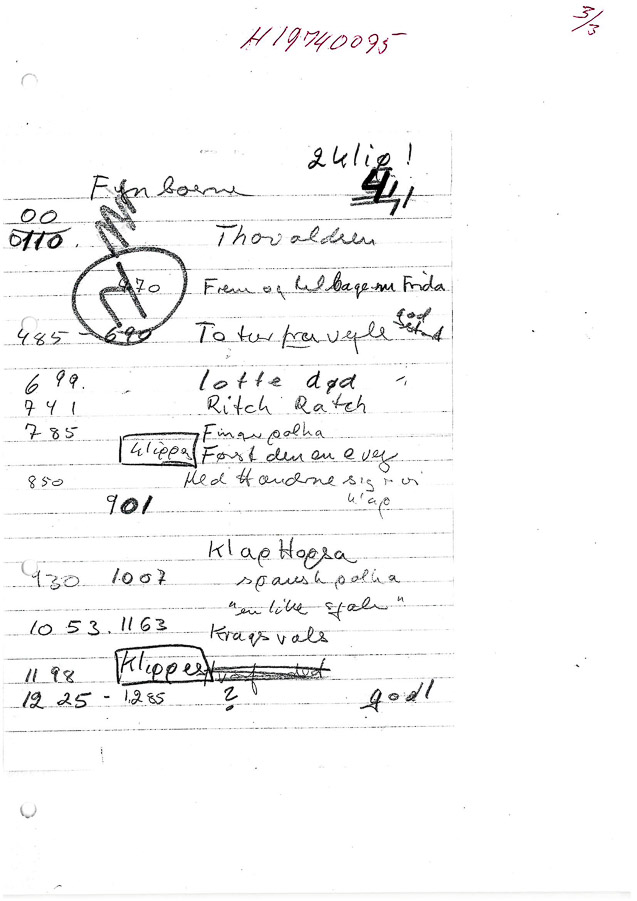 3/3
H19740095
2 klip!
Fynboerne
4
00
0110. Thorvaldsen
470 Frem og tilbage m Frida
485 - 690 To tur fra vejle god
699. lotte død
741 Ritch Ratch
785 Finger polka
klippes Først den ene vej
850 Med Hænderne siger vi
klap
901
Klap Hopsa
930 1007 spansk polka
"en lille sjæl"
1053. 1163 Krags vals
1198 Klippes
1225 - 1285 ? god!